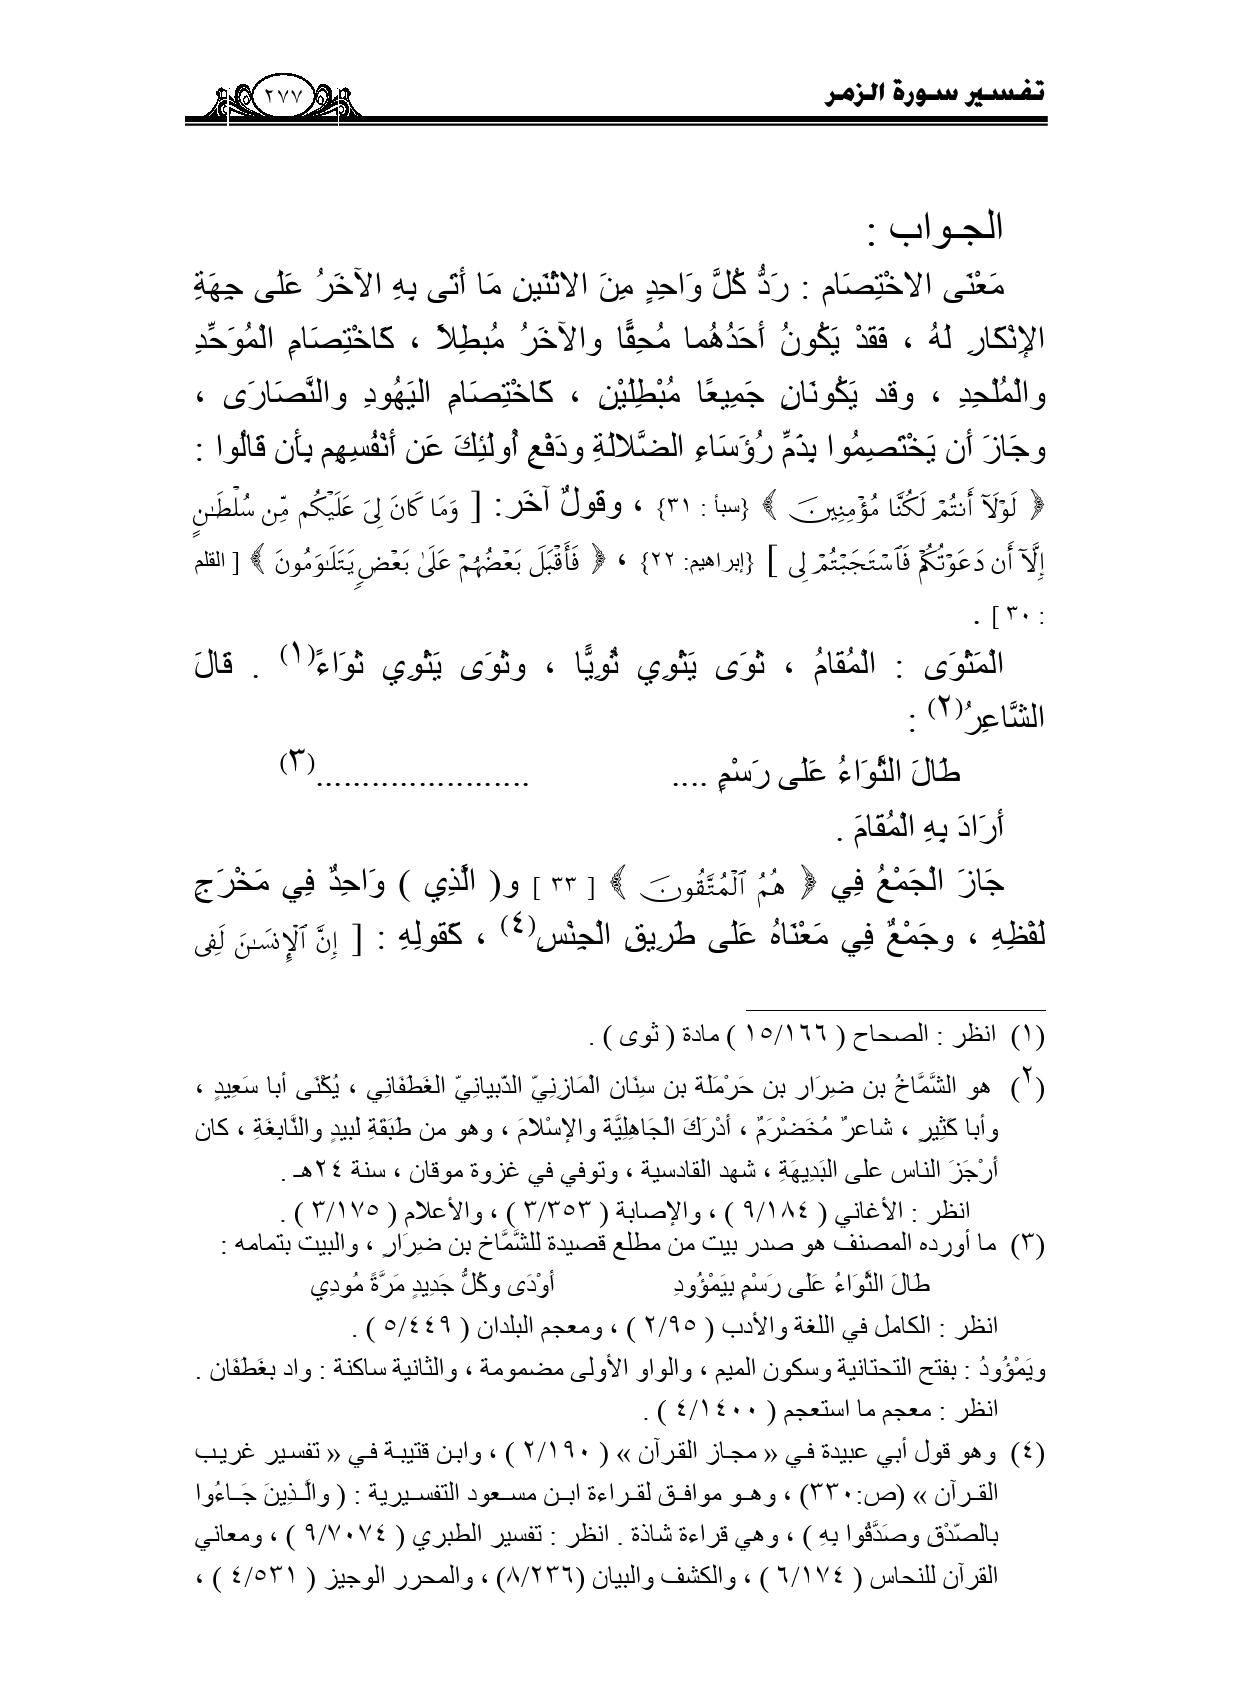 تفسير سورة الزمر
٢٧٧
الجـواب :
مَعْنَى الاخْتِصَام : رَدُّ كُلَّ وَاحِدٍ مِنَ الاثْنَينِ مَا أتَى بِهِ الآخَرُ عَلَى جِهَةِ
الإنْكَارِ لَهُ ، فَقدْ يَكُونُ أحَدُهُما مُحِقًّا والآخَرُ مُبطِلاً ، كَاخْتِصَامِ المُوَحِّدِ
والْمُلْحِدِ ، وقد يَكُونَانِ جَمِيعًا مُبْطِلِيْنِ ، كَاخْتِصَامِ اليَهُودِ والنَّصَارَى ،
وجَازَ أن يَخْتَصِمُوا بِذَمِّ رُؤَسَاءِ الضَّلالةِ ودَفْعِ أُولئِكَ عَن أنْفُسِهِم بِأن قَالُوا :
﴿ لَوْلَآ أَنتُمْ لَكُنَّا مُؤْمِنِينَ ﴾ {سبأ : ٣١} ، وقولٌ آخَر: [ وَمَا كَانَ لِيَ عَلَيْكُم مِّن سُلْطَـٰنٍ
إِلَّآ أَن دَعَوْتُكُمْ فَٱسْتَجَبْتُمْ لِى ] {إبراهيم: ٢٢} ، ﴿ فَأَقْبَلَ بَعْضُهُمْ عَلَىٰ بَعْضٍ يَتَلَـٰوَمُونَ ﴾ [ القلم
: ٣٠ ] .
الْمَثْوَى : الْمُقامُ ، ثَوَى يَثْوِي ثُوِيًّا ، وثَوَى يَثْوِي ثَوَاءً(١) . قالَ
الشَّاعِرُ(٢) :
طَالَ الثَّوَاءُ عَلَى رَسْمٍ .... .......................(٣)
أرَادَ بِهِ الْمُقامَ .
جَازَ الْجَمْعُ فِي ﴿ هُمُ ٱلْمُتَّقُونَ ﴾ [ ٣٣ ] و( الَّذِي ) وَاحِدٌ فِي مَخْرَجِ
لَفْظِهِ ، وجَمْعٌ فِي مَعْنَاهُ عَلَى طَرِيقِ الْجِنْسِ(٤) ، كَقولِهِ : [ إِنَّ ٱلْإِنسَـٰنَ لَفِى
(١) انظر : الصحاح ( ١٥/١٦٦ ) مادة ( ثوى ) .
(٢) هو الشَّمَّاخُ بن ضِرَار بن حَرْمَلة بن سِنَان المَازِنِيّ الذّبيانِيّ الغَطَفَانِي ، يُكْنَى أبا سَعِيدٍ ،
وأبا كَثِيرٍ ، شاعرٌ مُخَضْرَمٌ ، أدْرَكَ الجَاهِلِيَّة والإسْلامَ ، وهو من طَبَقةِ لبيدٍ والنَّابِغَةِ ، كان
أرْجَزَ الناس على البَدِيهَةِ ، شهد القادسية ، وتوفي في غزوة موقان ، سنة ٢٤هـ .
انظر : الأغاني ( ٩/١٨٤ ) ، والإصابة ( ٣/٣٥٣ ) ، والأعلام ( ٣/١٧٥ ) .
(٣) ما أورده المصنف هو صدر بيت من مطلع قصيدة للشَّمَّاخ بن ضِرَارٍ ، والبيت بتمامه :
طَالَ الثَّوَاءُ عَلَى رَسْمٍ بِيَمْؤُودِ أوْدَى وكُلُّ جَدِيدٍ مَرَّةً مُودِي
انظر : الكامل في اللغة والأدب ( ٢/٩٥ ) ، ومعجم البلدان ( ٥/٤٤٩ ) .
ويَمْؤُودُ : بفتح التحتانية وسكون الميم ، والواو الأولى مضمومة ، والثانية ساكنة : واد بغَطَفَان .
انظر : معجم ما استعجم ( ٤/١٤٠٠ ) .
(٤) وهو قول أبي عبيدة في « مجاز القرآن » ( ٢/١٩٠ ) ، وابن قتيبة في « تفسير غريب
القرآن » (ص:٣٣٠) ، وهو موافق لقراءة ابن مسعود التفسيرية : ( والَّذِينَ جَاءُوا
بالصّدْق وصَدَّقُوا بِهِ ) ، وهي قراءة شاذة . انظر : تفسير الطبري ( ٩/٧٠٧٤ ) ، ومعاني
القرآن للنحاس ( ٦/١٧٤ ) ، والكشف والبيان (٨/٢٣٦) ، والمحرر الوجيز ( ٤/٥٣١ ) ،